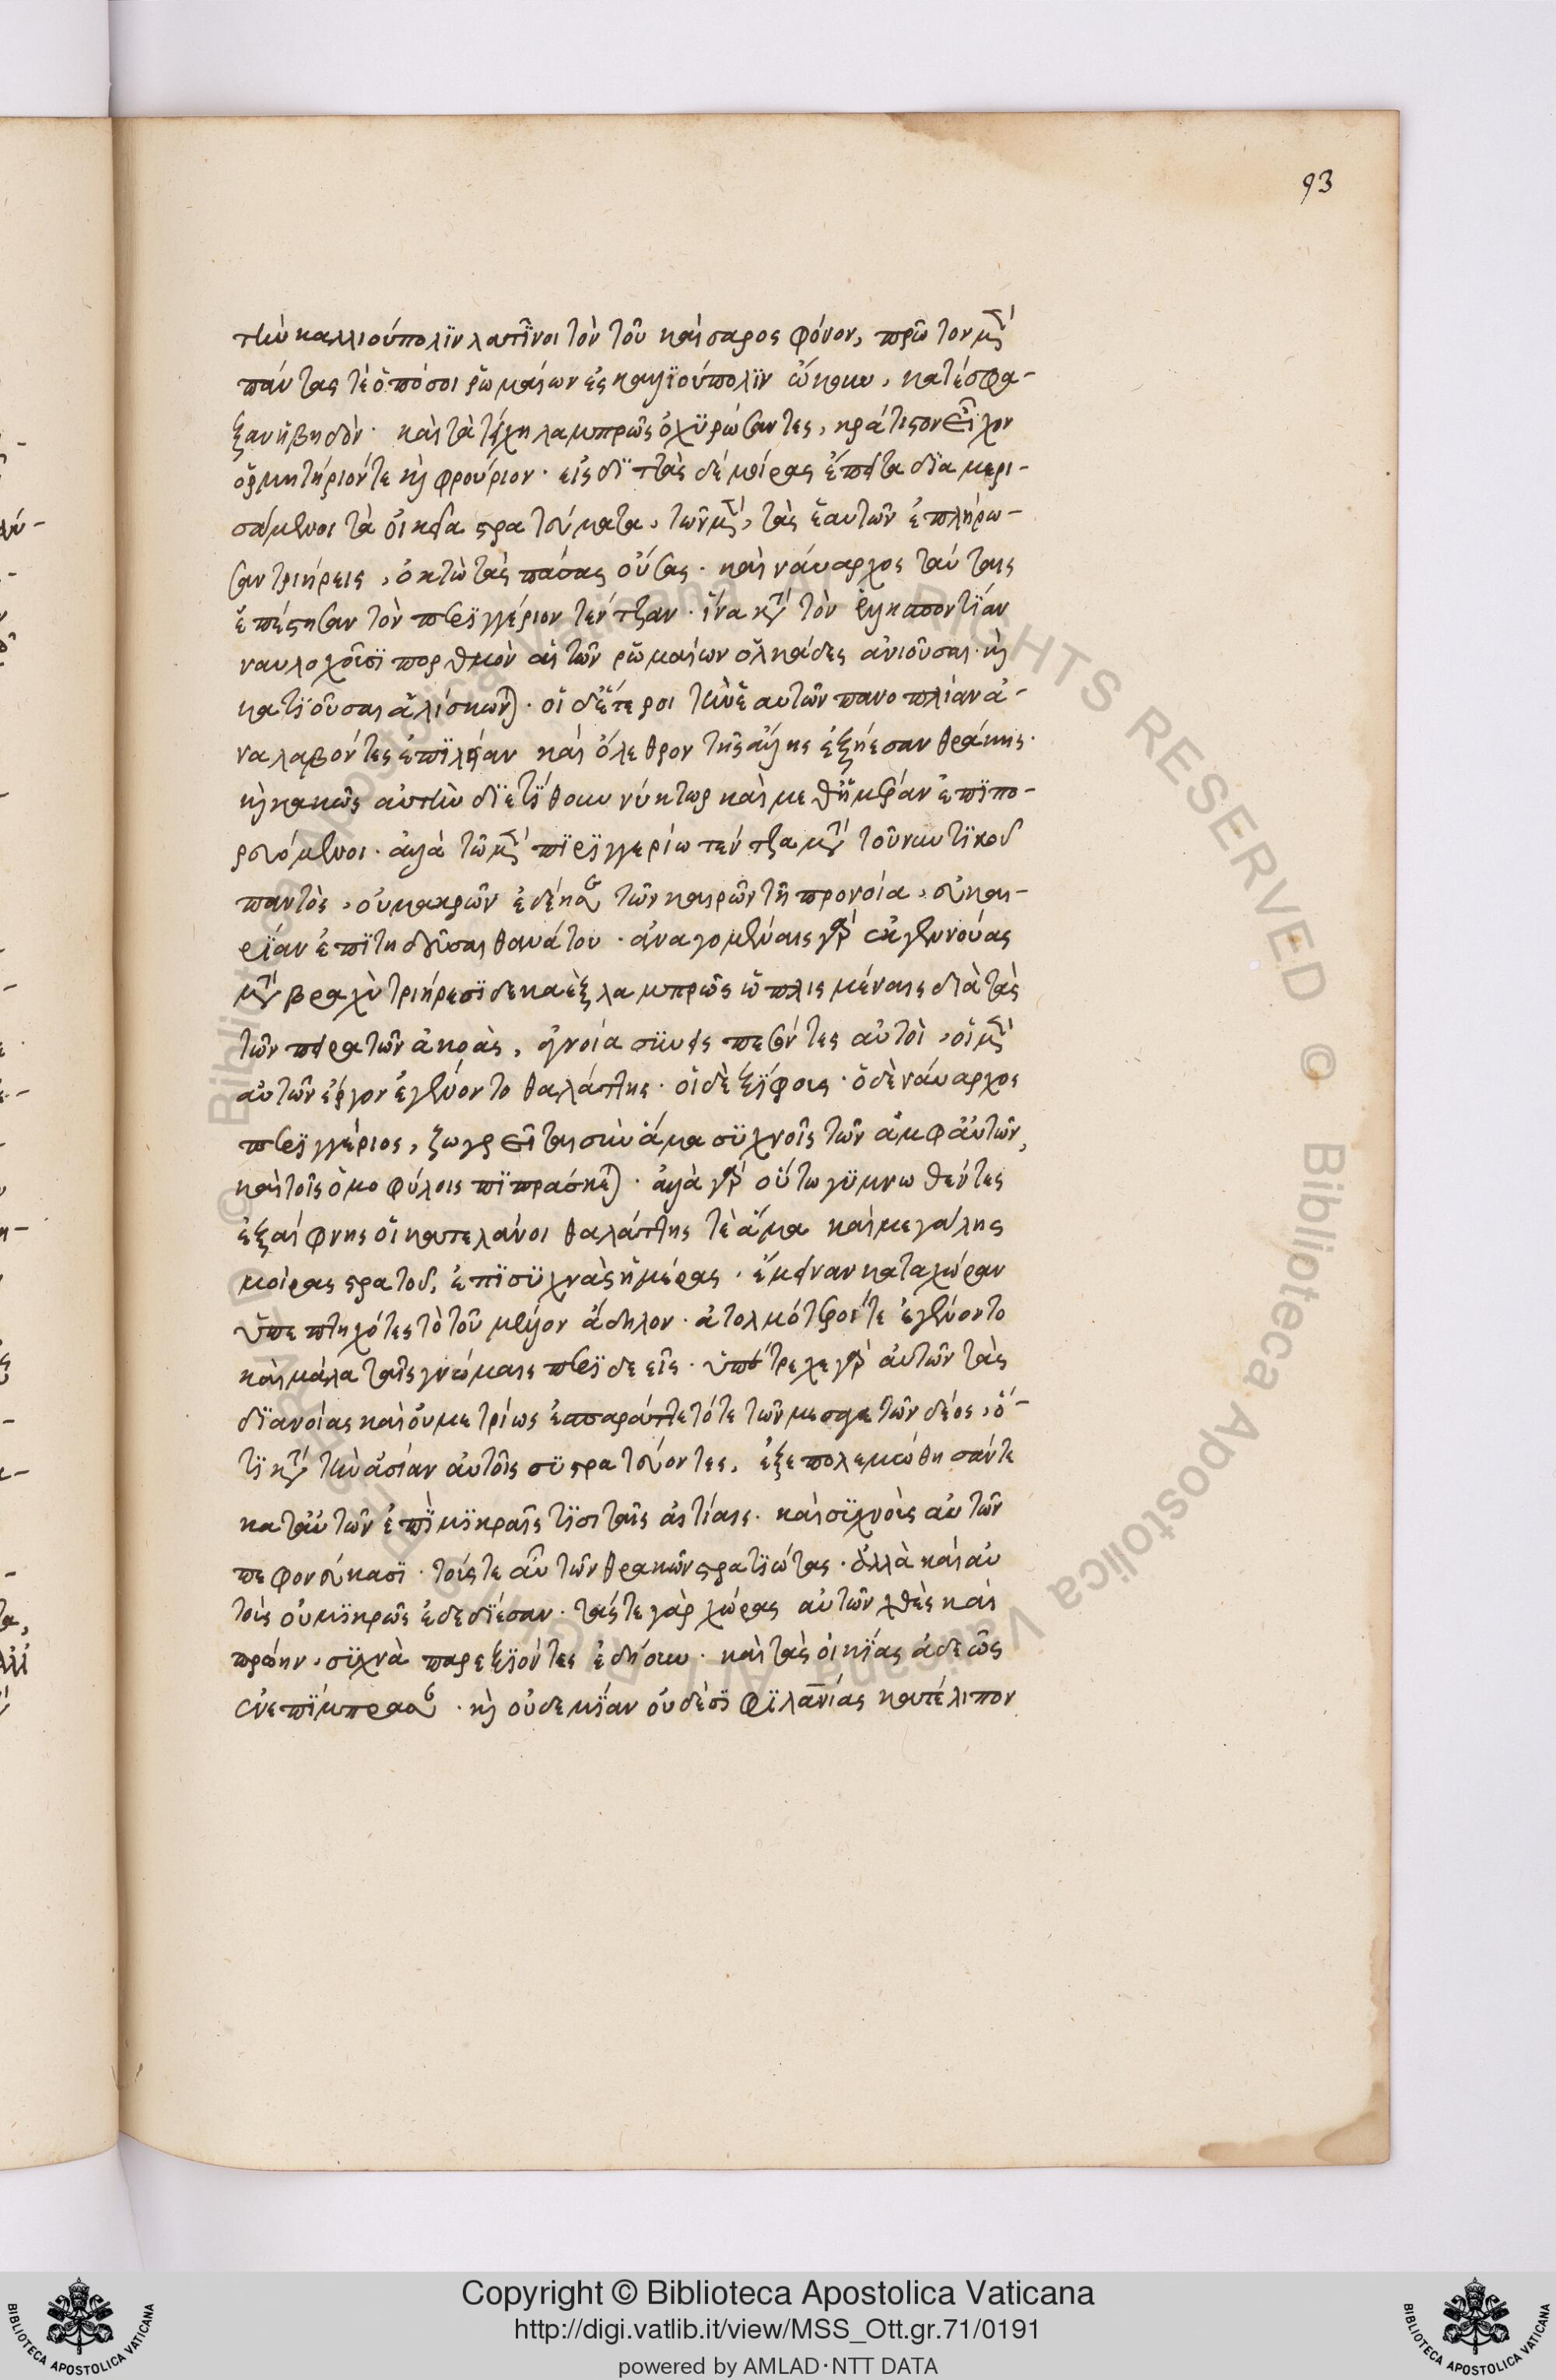 93
τὴν καλλιούπολϊν λατῖνοι τὸν τοῦ καίσαρος φόνον, πρῶτον μὲν
πάντας τὲ ὁπόσοι ῥωμαίων ἐς καλλϊούπολϊν ᾤκουν, κατέσφα-
ξαν ἡβηδόν· καὶ τὰ τείχη λαμπρῶς ὀχϋρώσαντες, κράτιστον εἶχον
ὁρμητήριόν τε καὶ φρούριον· εἰς δϊττὰς δὲ μοίρας ἔπειτα δϊαμερι-
σάμενοι τὰ οἰκεῖα στρατεύματα, τῶν μὲν, τὰς ἑαυτῶν ἐπλήρω-
σαν τριήρεις, ὀκτὼ τὰς πάσας οὔσας· καὶ ναύαρχος ταύταις
ἐπέστησαν τὸν περϊγγέριον τέντζαν· ἵνα κατὰ τὸν ἑλλησποντϊαν
ναυλοχοῖσϊ πορθμὸν αἱ τῶν ῥωμαίων ὁλκάδες ἀνιοῦσαι καὶ
κατϊοῦσαι ἁλίσκωνται· οἱ δ' ἕτεροι τὴν ἑαυτῶν πανοπλίαν ἀ-
ναλαβόντες ἐπϊ λείαν καὶ ὄλεθρον τῆς ἄλλης ἐξήεσαν θράκης·
καὶ κακῶς αὐτὴν δϊετϊθουν νύκτωρ καὶ μεθημέραν ἐπϊπο-
ρευόμενοι· ἀλλὰ τῶ μὲν πϊρϊγγερίω τέντζα μετὰ τοῦ ναυτϊκοῦ
παντὸς, οὐ μακρῶν ἐδέησε τῶν καιρῶν τῆ προνοία, εὐκαι-
ρϊαν ἐπϊτηδεῦσαι θανάτου· ἀναγομέναις γὰρ ἐκ γεννούας
μετὰ βραχὺ τριήρεσϊ δεκαὲξ λαμπρῶς ὡπλισμέναις διὰ τὰς
τῶν πειρατῶν ἀκοὰς, ἀγνοία σϋμπεσόντες αὐτοὶ, οἱ μὲν
αὐτῶν ἔργον ἐγένοντο θαλάττης· οἱ δὲ ξϊφους· ὁ δὲ ναύαρχος
περϊγγέριος, ζωγρεῖται σὺν ἅμα σϋχνοῖς τῶν ἀμφ' αὐτῶν,
καὶ τοῖς ὁμοφύλοις πϊπράσκεται· ἀλλὰ γὰρ οὕτω γϋμνωθέντες
ἐξαίφνης οἱ κατελάνοι θαλάττης τὲ ἅμα καὶ μεγάλης
μοίρας στρατοῦ, ἐπϊ σϋχνὰς ἡμέρας· ἔμειναν καταχώραν
ὑπεπτηχότες τὸ τοῦ μέλλον ἄδηλον· ἀτολμότεροί τε ἐγένοντο
καὶ μάλα ταῖς γνώμαις περϊδεεῖς· ὑπέτρεχε γὰρ αὐτῶν τὰς
δϊανοίας καὶ οὐ μετρίως ἐσπαράττε τότε τῶν μεσαγετῶν δέος, ὅ-
τϊ κατὰ τὴν ἀσίαν αὐτοῖς σϋστρατεύοντες, ἐξεπολεμώθησάν τε
κατ' αὐτῶν ἐπϊ μϊκραῖς τϊσι ταῖς αἰτίαις· καὶ σϊχνοὺς αὐτῶν
πεφονεύκασϊ· τούς τε αὖ τῶν θρακῶν στρατϊώτας· ἀλλὰ καὶ αὐ
τοὺς οὐ μϊκρῶς ἐδεδϊεσαν· τάς τε γὰρ χώρας αὐτῶν χθὲς καὶ
πρώην, σϊχνὰ παρεξϊόντες ἐδήουν· καὶ τὰς οἰκϊας ἀδεῶς
ἐνεπϊμπρασαν· καὶ οὐδεμϊαν οὐδέσϊ φϊλανίας κατέλιπον
Copyright © Biblioteca Apostolica Vaticana
http://digi.vatlib.it/view/MSS_Ott.gr.71/0191
powered by AMLAD·NTT DATA